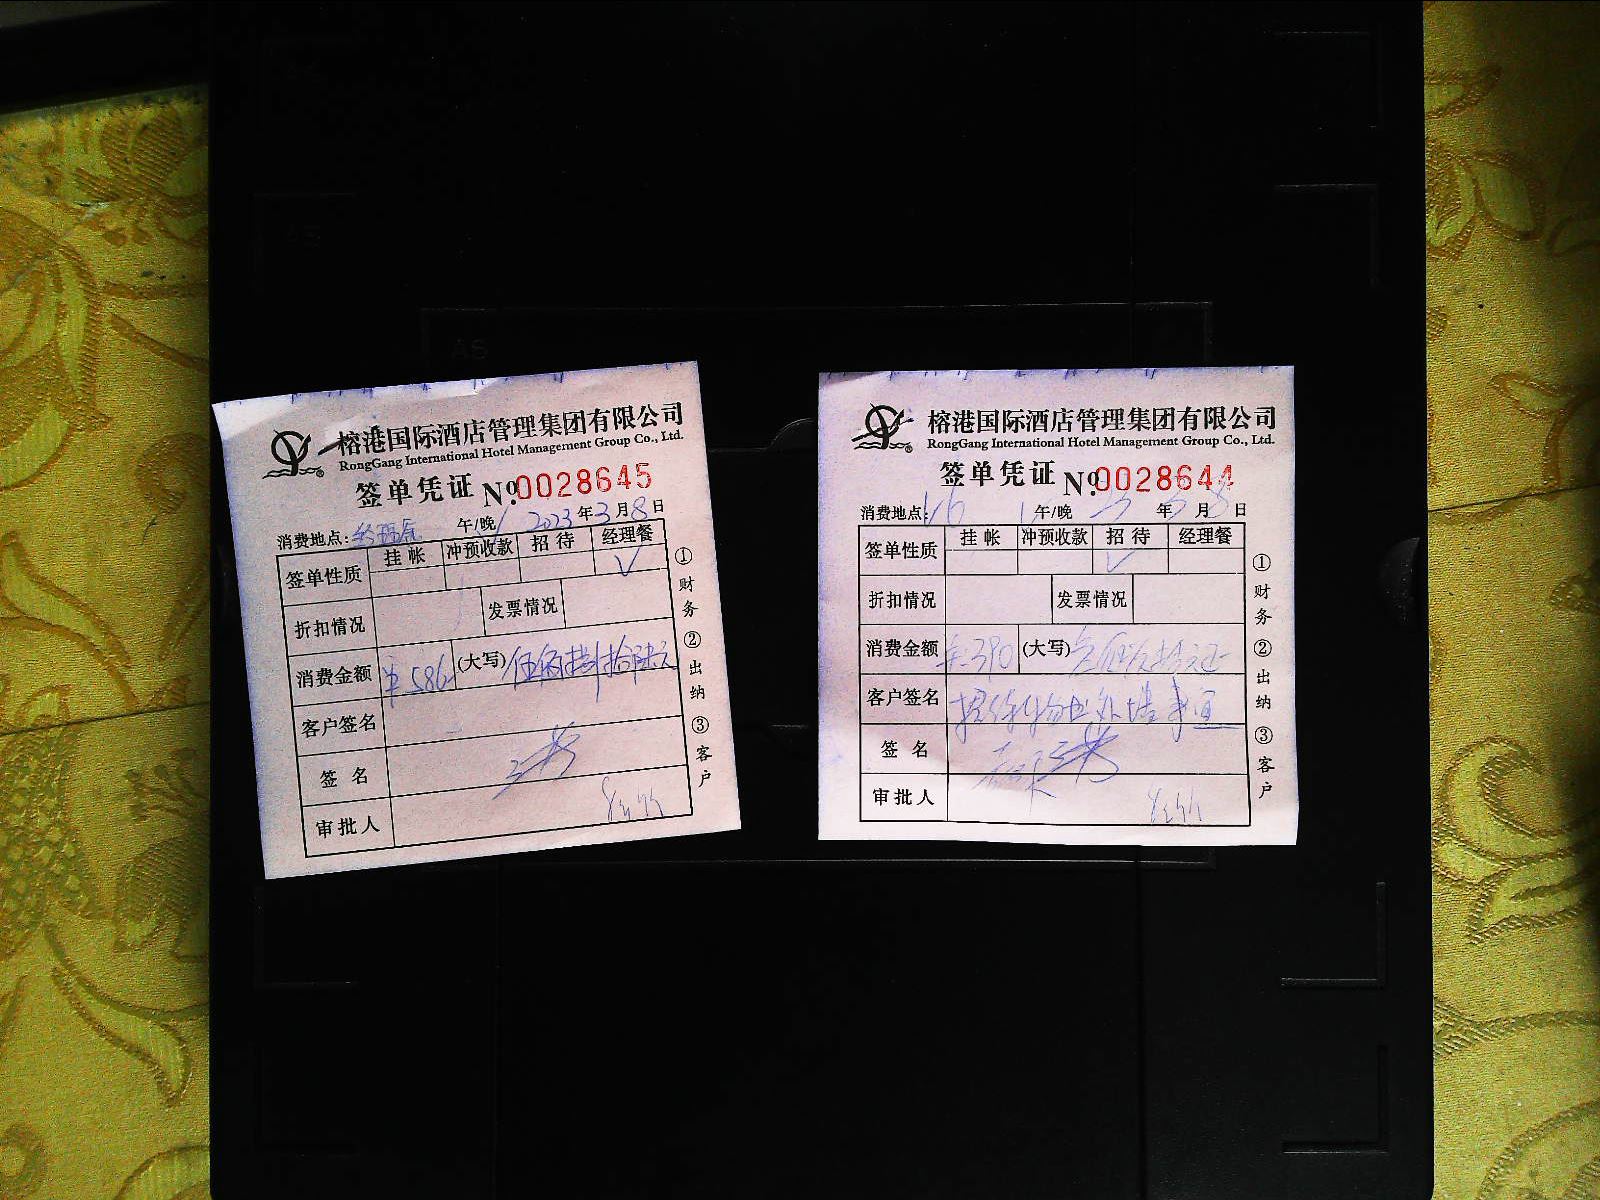 榕港国际酒店管理集团有限公司
RongGang International Hotel Management Group Co., Ltd.
签单凭证 №0028645
消费地点: 午/晚 2023年3月8日
签单性质 挂帐 冲预收款 招待 经理餐
✓
折扣情况 发票情况
消费金额 ¥586 (大写) 伍佰捌拾陆元
客户签名
签名
审批人
①财务 ②出纳 ③客户
榕港国际酒店管理集团有限公司
RongGang International Hotel Management Group Co., Ltd.
签单凭证 №0028644
消费地点: 116 午/晚 23年3月8日
签单性质 挂帐 冲预收款 招待 经理餐
✓
折扣情况 发票情况
消费金额 390 (大写)
客户签名 招待
签名
审批人
①财务 ②出纳 ③客户